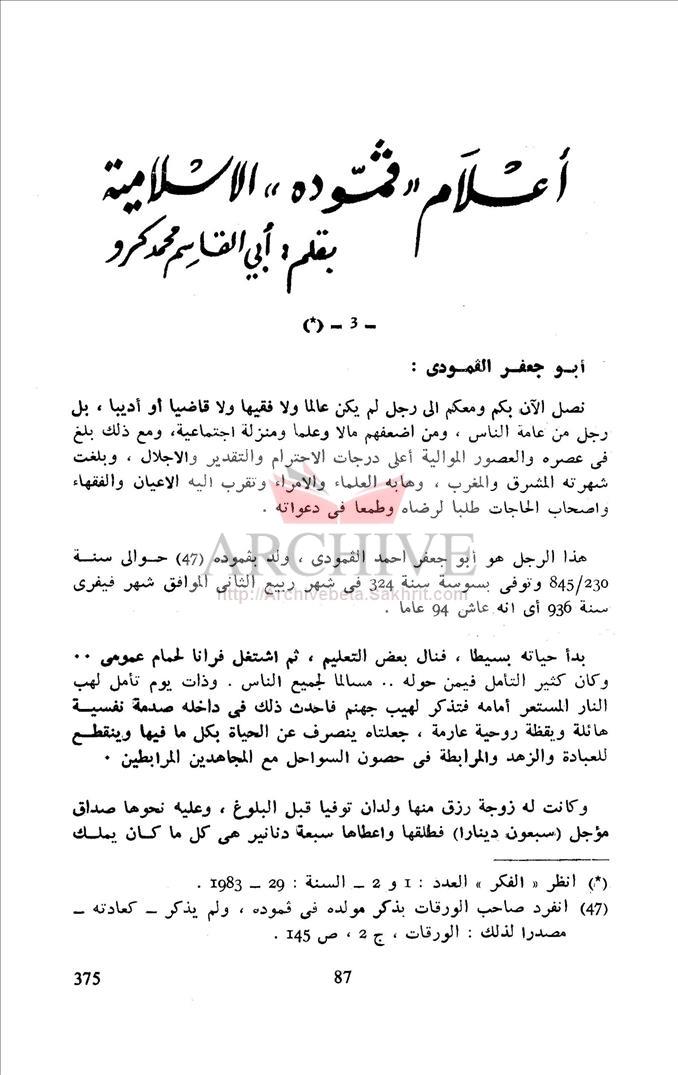 أعْلَام «ڤمّوده» الاسْلامية
بقلم: أبي القاسم محمد كرو
ـ 3 ـ (*)
أبـو جعفـر الڤمـودى :
نصل الآن بكم ومعكم الى رجل لم يكن عالما ولا فقيها ولا قاضيا أو أديبا ، بل
رجل من عامة الناس ، ومن اضعفهم مالا وعلما ومنزلة اجتماعية، ومع ذلك بلغ
فى عصره والعصور الموالية أعلى درجات الاحترام والتقدير والاجلال ، وبلغت
شهرته المشرق والمغرب ، وهابه العلماء والامراء وتقرب اليه الاعيان والفقهاء
واصحاب الحاجات طلبا لرضاه وطمعا فى دعواته .
ARCHIVE
هذا الرجل هو أبو جعفر احمد الڤمودى ، ولد بڤموده (47) حـوالى سنـة
845/230 وتوفى بسوسة سنة 324 فى شهر ربيع الثانى الموافق شهر فيفرى
http://Archivebeta.Sakhrit.com
سنة 936 أى انه عاش 94 عاما .
بدأ حياته بسيطا ، فنال بعض التعليم ، ثم اشتغل فرانا لحمام عمومى ..
وكان كثير التأمل فيمن حوله .. مسالما لجميع الناس . وذات يوم تأمل لهب
النار المستعر أمامه فتذكر لهيب جهنم فاحدث ذلك فى داخله صدمة نفسيـة
هائلة ويقظة روحية عارمة ، جعلتاه ينصرف عن الحياة بكل ما فيها وينقطـع
للعبادة والزهد والمرابطة فى حصون السواحل مع المجاهدين المرابطين .
وكانت له زوجة رزق منها ولدان توفيا قبل البلوغ ، وعليه نحوها صداق
مؤجل (سبعون دينارا) فطلقها واعطاها سبعة دنانير هى كل ما كـان يملـك
(*) انظر « الفكر » العدد : 1 و 2 ـ السنة : 29 ـ 1983 .
(47) انفرد صاحب الورقات بذكر مولده فى ڤموده ، ولم يذكر ـ كعادته ـ
مصدرا لذلك : الورقات ، ج 2 ، ص 145 .
87
375